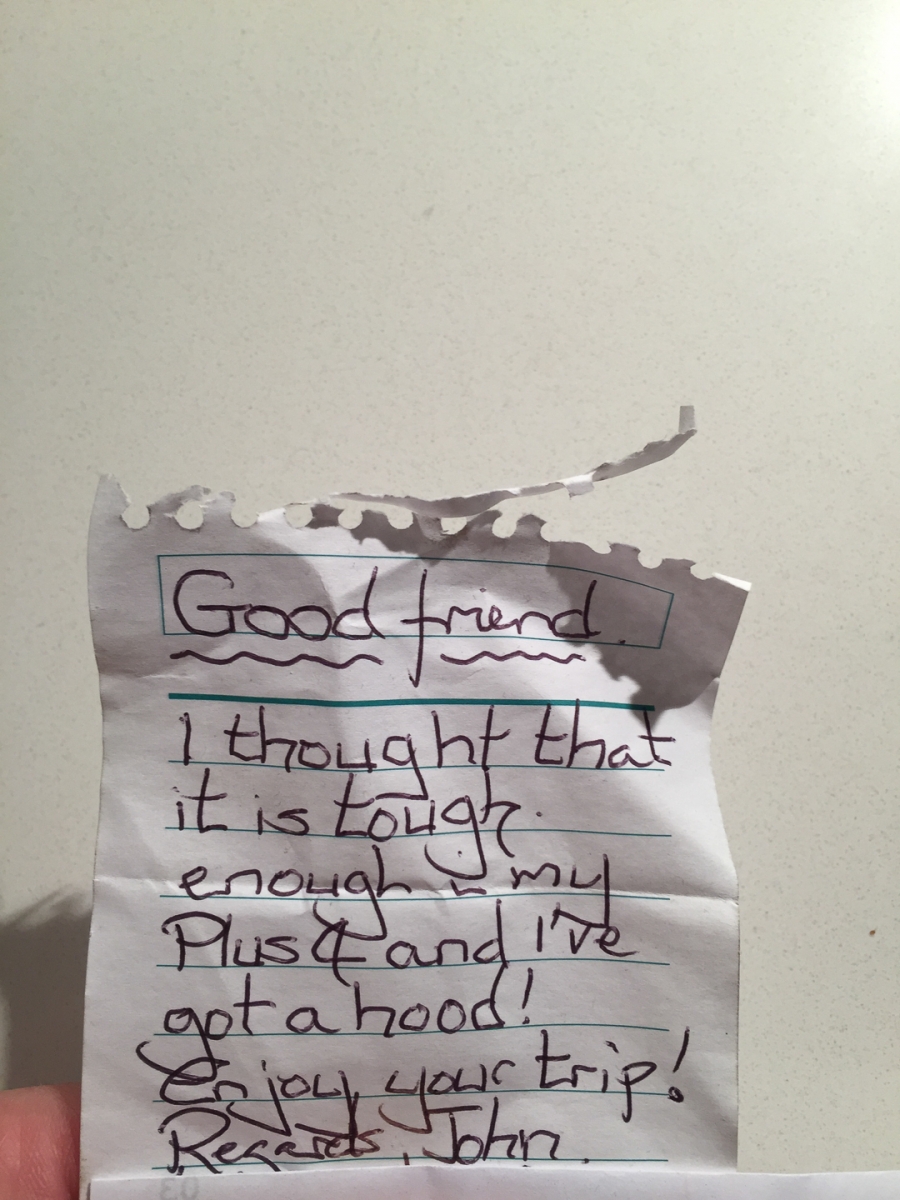 Good friend.
I thought that
it is tough.
enough in my
Plus 4 and I've
got a hood!
Enjoy your trip!
Regards, John.
03